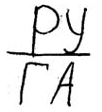 РУ
ГА